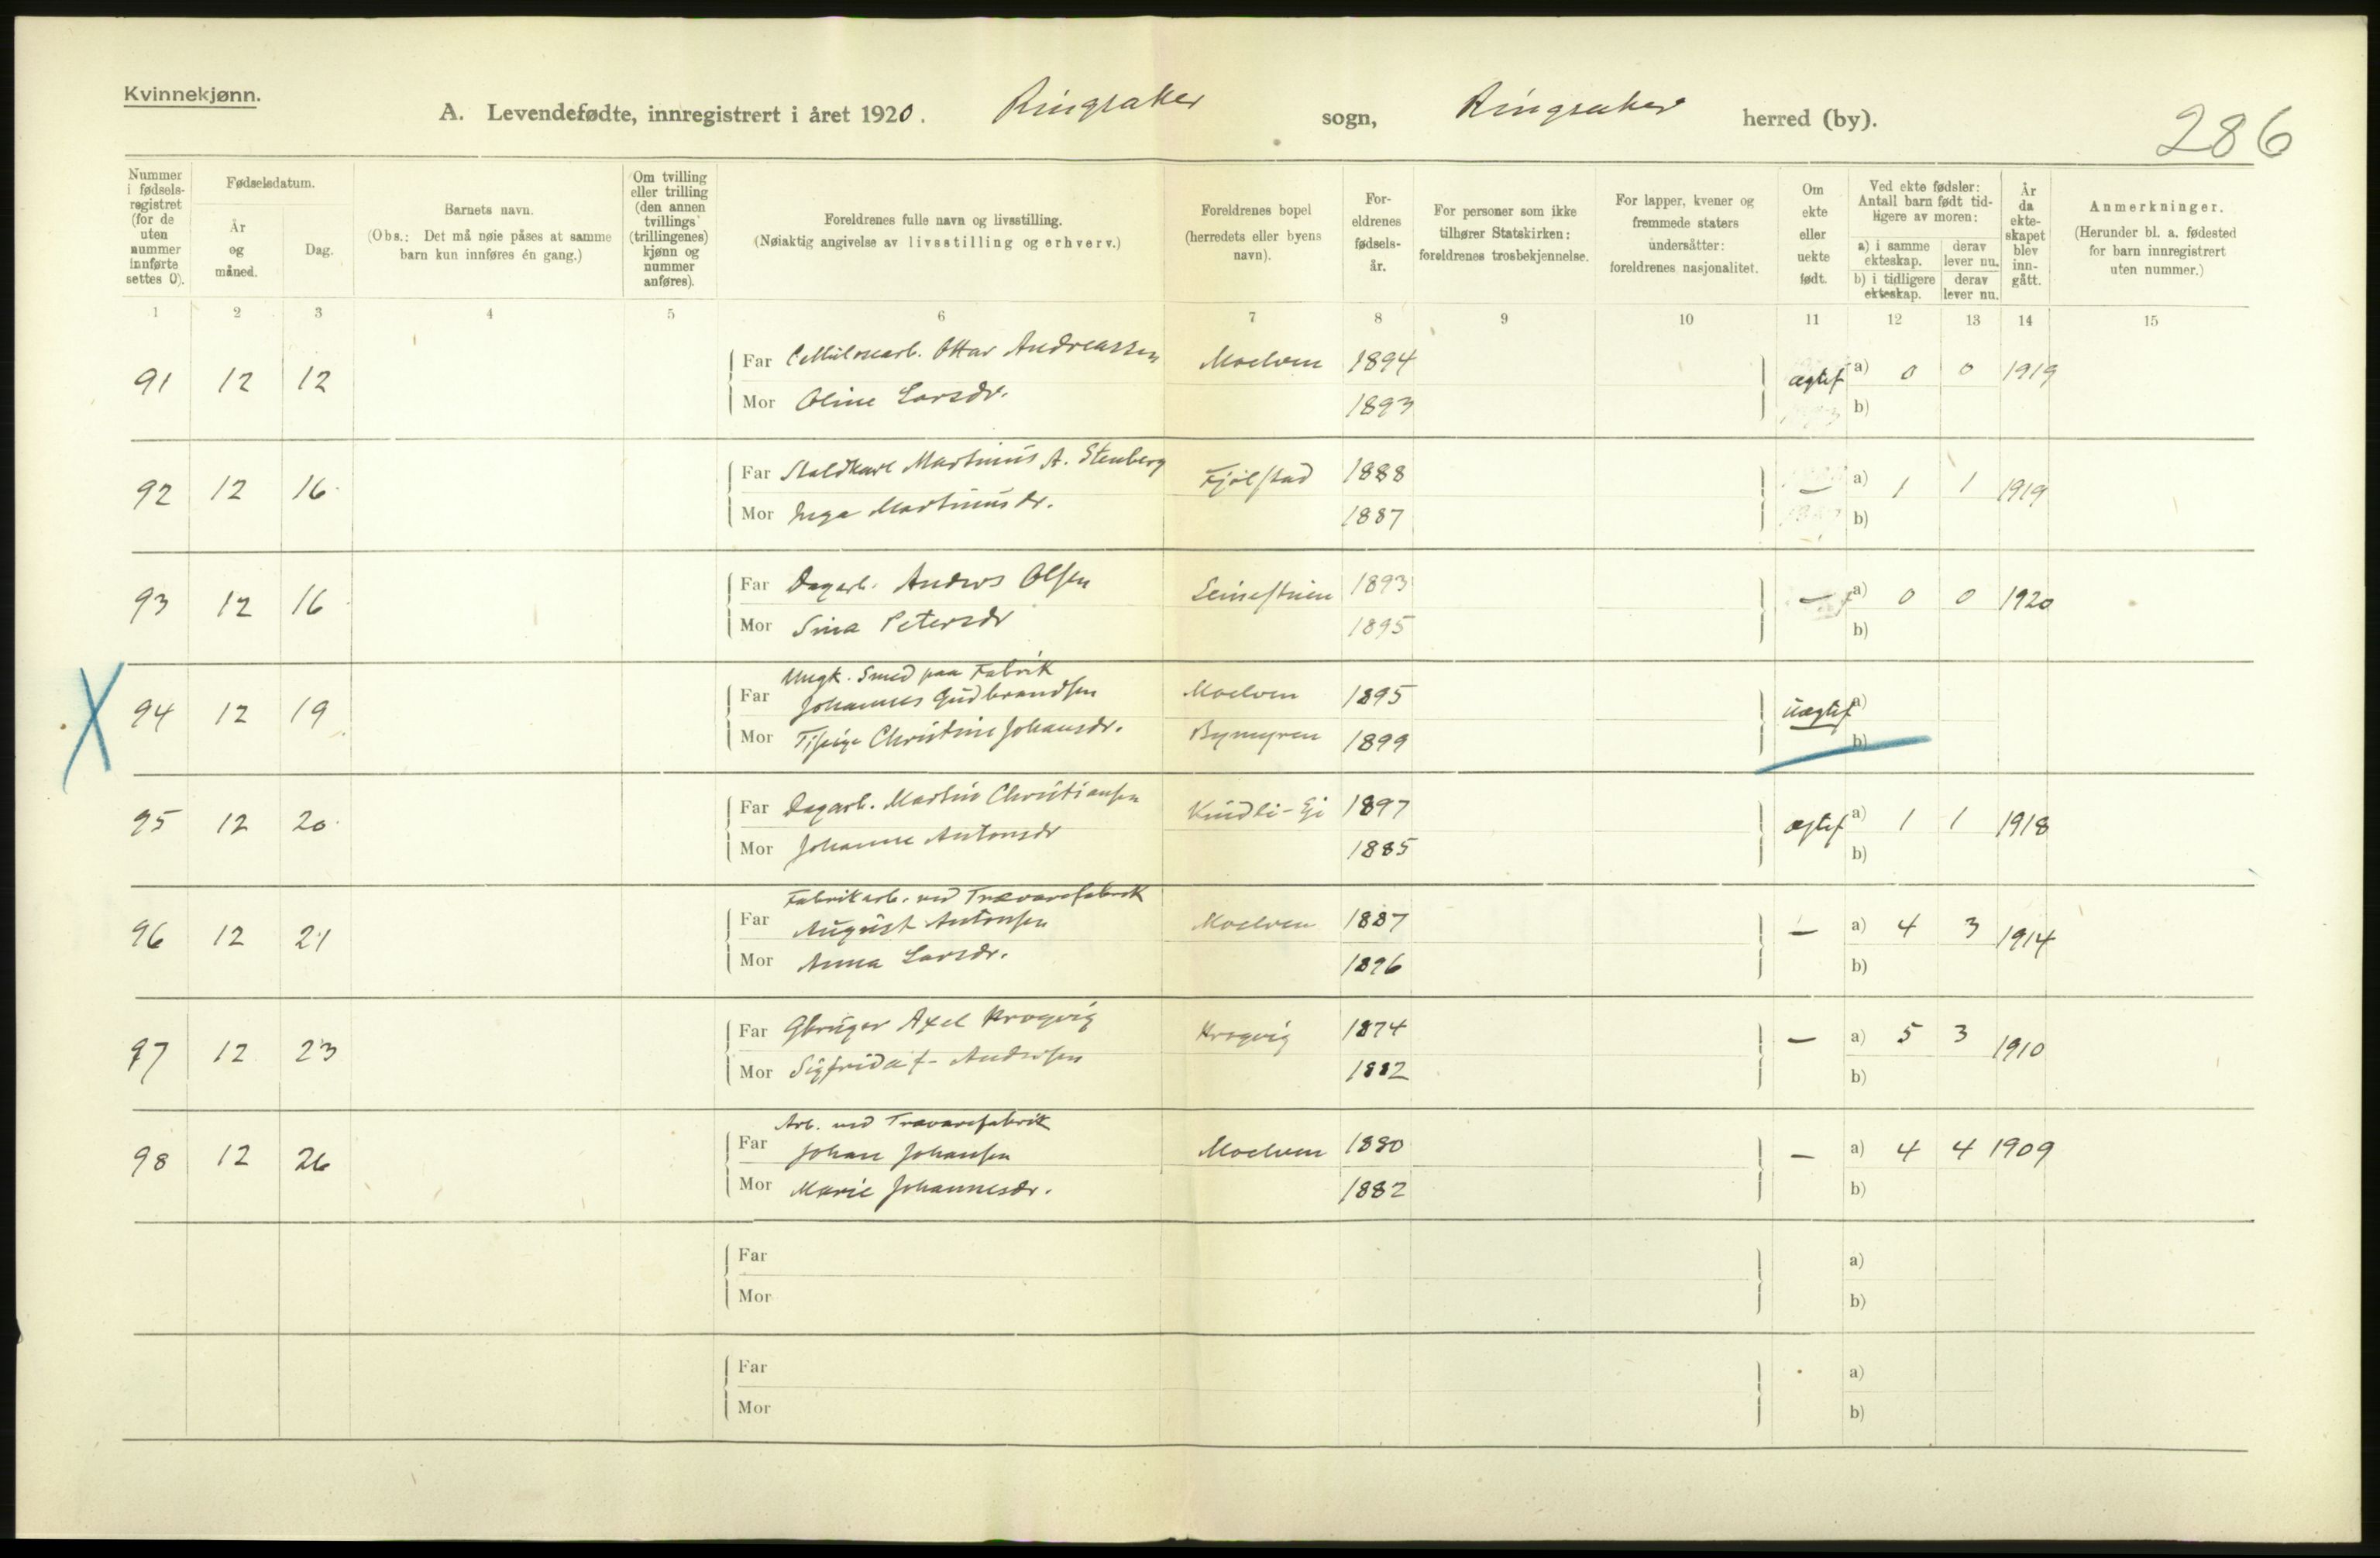 Kvinnekjønn.
A. Levendefødte, innregistrert i året 1920. Ringsaker sogn, Ringsaker herred (by).
286
Nummer i fødsels-registret (for de uten nummer innførte settes 0).
Fødselsdatum.
År og måned.
Dag.
Barnets navn.
(Obs.: Det må nøie påses at samme barn kun innføres én gang.)
Om tvilling eller trilling (den annen tvillings (trillingenes) kjønn og nummer anføres).
Foreldrenes fulle navn og livsstilling.
(Nøiaktig angivelse av livsstilling og erhverv.)
Foreldrenes bopel (herredets eller byens navn).
For-eldrenes fødsels-år.
For personer som ikke tilhører Statskirken: foreldrenes trosbekjennelse.
For lapper, kvener og fremmede staters undersåtter: foreldrenes nasjonalitet.
Om ekte eller uekte født.
Ved ekte fødsler: Antall barn født tid-ligere av moren:
a) i samme ekteskap.
derav lever nu.
b) i tidligere ekteskap.
derav lever nu.
År da ekte-skapet blev inn-gått.
Anmerkninger.
(Herunder bl. a. fødested for barn innregistrert uten nummer.)
1 2 3 4 5 6 7 8 9 10 11 12 13 14 15
91 12 12 Far Cellulosearb. Ottar Andreassen Moelven 1894 ægtef a) 0 0 1919
Mor Oline Larsdr. 1893 b)
92 12 16 Far Staldkarl Martinius A. Stenberg Fjølstad 1888 — a) 1 1 1919
Mor Inga Martiniusdr. 1887 b)
93 12 16 Far Dagarb. Anders Olsen 1893 — a) 0 0 1920
Mor Sina Petersdr 1895 b)
Ungk. Smed paa Fabrik
94 12 19 Far Johannes Gudbrandsen Moelven 1895 uægtef a)
Mor Christine Johansdr. Bymyren 1899 b)
95 12 20 Far Dagarb. Martin Christiansen Kindli-Ei 1897 ægtef a) 1 1 1918
Mor Johanne Antonsdr 1885 b)
Fabrikarb. ved Trævarefabrik
96 12 21 Far August Antonsen Moelven 1887 — a) 4 3 1914
Mor Anna Larsdr. 1896 b)
97 12 23 Far Gbruger Axel Krogvig Krogvig 1874 — a) 5 3 1910
Mor Sigfrida f. Andersen 1882 b)
Arb. ved Trævarefabrik
98 12 26 Far Johan Johansen Moelven 1880 — a) 4 4 1909
Mor Marie Johannesdr. 1882 b)
Far a)
Mor b)
Far a)
Mor b)